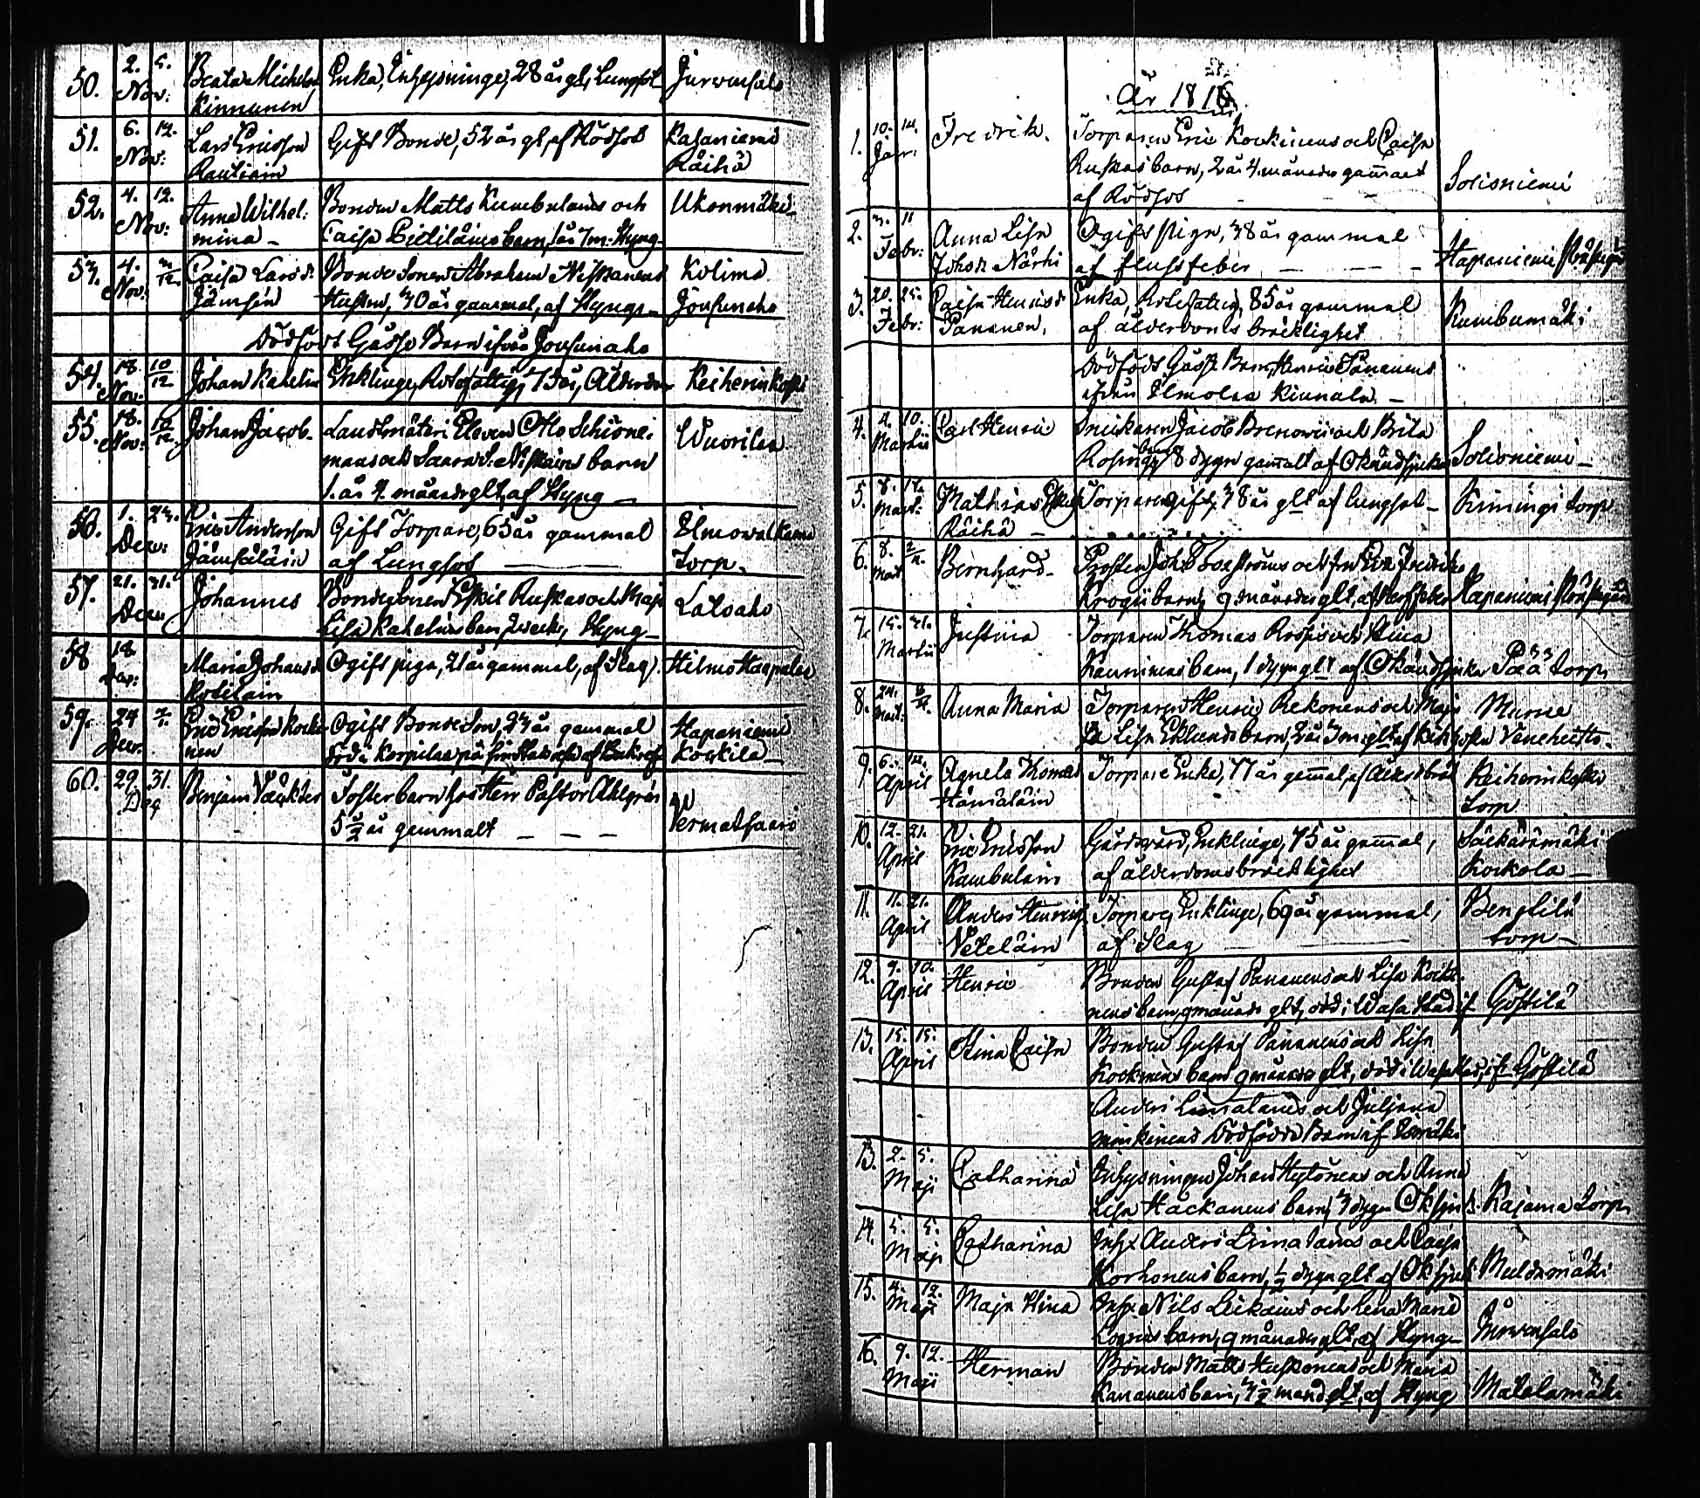 50. 2. 5. Nov: Beata Michelsd. Kinnunen
Enka, Inhysninge, 28 år gl, Lungsot
51. 6. 12. Nov: Lars Ericsson Rautiain
Gift Bonde, 52 år gl, af Rödsot
Kajaniemi Räihä
52. 4. 12. Nov: Anna Wilhelmina
Bonden Matts Kumbulains och
Caisa barn, 1 år 7 m: Hyng
Ukonmäki
53. 4. Nov: Caisa Larsdr Jämsen
Bonde Sonen Abraham Niskanens
Hustru, 40 år gammal, af Hyngs
Kolima Jousunaho
Dödfödt Gåsse Barn ifrån Jousunaho
54. 18. Nov: 10/12 Johan Kahelin
Enklinge, Rotefattig, 75 år, Ålderdom
Keiherinkoski
55. 18. Nov: Johan Jacob
Landtmäteri Eleven Otto Schöne-
mans och Saara S. Niskains barn
1. år 4. månader glt, af Hyng
Wuorilax
56. 1. 23. Dec: Eric Andersson
Gift Torpare, 65 år gammal
af Lungsot
Torp
57. 21. 31. Dec: Johannes
Bondesonen Eskil Ruskas och Maja
Lisa Kahelins barn, 2 weck, Hyng
Latoaho
58 18 Maria Johansdr
Ogift piga, 21 år gammal, af Slag
Hilmo
59. 24 Dec.
Ogift Bonde Son, 23 år gammal
Hapaniemi Kockila
60. 29. 31. Dec Benjam Väcktär
Fosterbarn hos Herr Pastor Ahlgrén
5 1/2 år gammalt
Vermassaari
År 1816
1. 10. 14. Janr: Fredrik.
Torparen Eric Kockinens och Caisa
Ruskas barn, 2 år 4 månader gammalt
af Rödsot
Solisniemi
2. 3. 11 Febr: Anna Lisa Johsdr Närhi
Ogift pigan, 48 år gammal
af flussfeber
Hapaniemi Prästgård
3. 20. 25. Febr: Caisa Henricsdr Pananen
Enka, Rotefattig, 85 år gammal
af ålderdoms bräcklighet
Kumbumäki
Dödfödt Gåsse Barn, Henric Pananens
ifrån Kinnula
4. 4. 10. Martii Carl Henric
Snickaren Jacob Brenorii och Brita
barn, 8 dygn gamalt af Okändsjukdom
Solisniemi
5. 8. 17. Mart: Mathias Räihä
Torparen gift, 48 år glt af lungsot
Kimingi torp
6. 8. Mart Bernhard
Prosten Joh och fru Eva Fredrika
Krogii barn, 9 månader glt, af
Hapaniemi Prästgård
7. 15. 31. Martii Justina
Torparen Thomas och Stina
Kauninens barn, 1 dygn glt af Okändsjukd
Pää torp
8. 24. Mart: Anna Maria
Torparen Henric Rekonens och Maja
Lisa Eklunds barn, 2 år 3 m: glt af Kikhosta
9. 6. 14. April Agneta Thomasd Hämäläin
Torpare Enka, 77 år gamal, af
Keiherinkoski torp
10. 12. 21. April Eric Ericsson Kumbulain
Gårdsvärd, Enklinge, 75 år gamal,
af ålderdomsbräcklighet
Sääkärämäki Kockola
11. 11. 21. April Anders Henricss. Veteläin
Torpare, Enklinge, 69 år gammal,
af Slag
Bengtilä torp
12. 9. 10. April Henric
Bonden Gustaf Pananens och Lisa Kocki-
nens barn, 9 månader glt, död i Wasa Stad if
Göstilä
13. 15. 15. April Stina Caisa
Bonden Gustaf Pananens och Lisa
Kockinens barn 9 månader glt, död i Wasa Stad, if.
Göstilä
Anders Linnalains och Juljana
Minkinens Dödfödde Barn if
13. 2. 5. Maji Catharina
Inhysningen Johan Hytönens och Anna
Lisa Hackanens barn, 3 dygn Ok sjuk:
Kajama torp
14. 5. 5. Maji Catharina
Inhy: Anders Linnalains och Caisa
Korhonens barn, 1/2 dygn glt af Ok sjuk
Muldamäki
15. 4. 12. Maji Maja Stina
Inhy: Nils Leikains och Lena Maria
barn, 9 månader glt, af Hyng
16. 9. 12. Maji Herman
Bonden Matts Huskonens och Maria
Kananens barn, 4 1/2 månad glt, af Hyng
Matalamäki